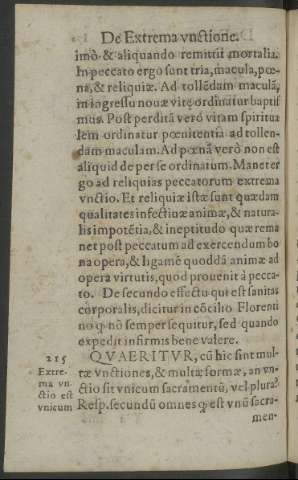 De Extrema vnctione.
imò & aliquando remittit mortalia.
In peccato ergo sunt tria, macula, pœ-
na, & reliquiæ. Ad tollẽdam maculã,
in ingressu nouæ vitę ordinatur baptis
mus. Post perditã verò vitam spiritua
lem ordinatur pœnitentia ad tollen-
dam maculam. Ad pœnã verò non est
aliquid de per se ordinatum. Manet er
go ad reliquias peccatorum extrema
vnctio. Et reliquiæ istæ sunt quædam
qualitates infectiuæ animæ, & natura-
lis impotẽtia, & ineptitudo quæ rema
net post peccatum ad exercendum bo
na opera, & ligamẽ quoddã animæ ad
opera virtutis, quod prouenit à pecca-
to. De secundo effectu qui est sanitas
corporalis, dicitur in cõcilio Florenti
no q nõ semper sequitur, sed quando
expedit infirmis bene valere.
QVAERITVR, cũ hic sint mul-
tæ vnctiones, & multæ formæ, an vn-
ctio sit vnicum sacramẽtũ, vel plura?
Resp. secundũ omnes q est vnũ sacra-
men-
215
Extre-
ma vn
ctio est
vnicum